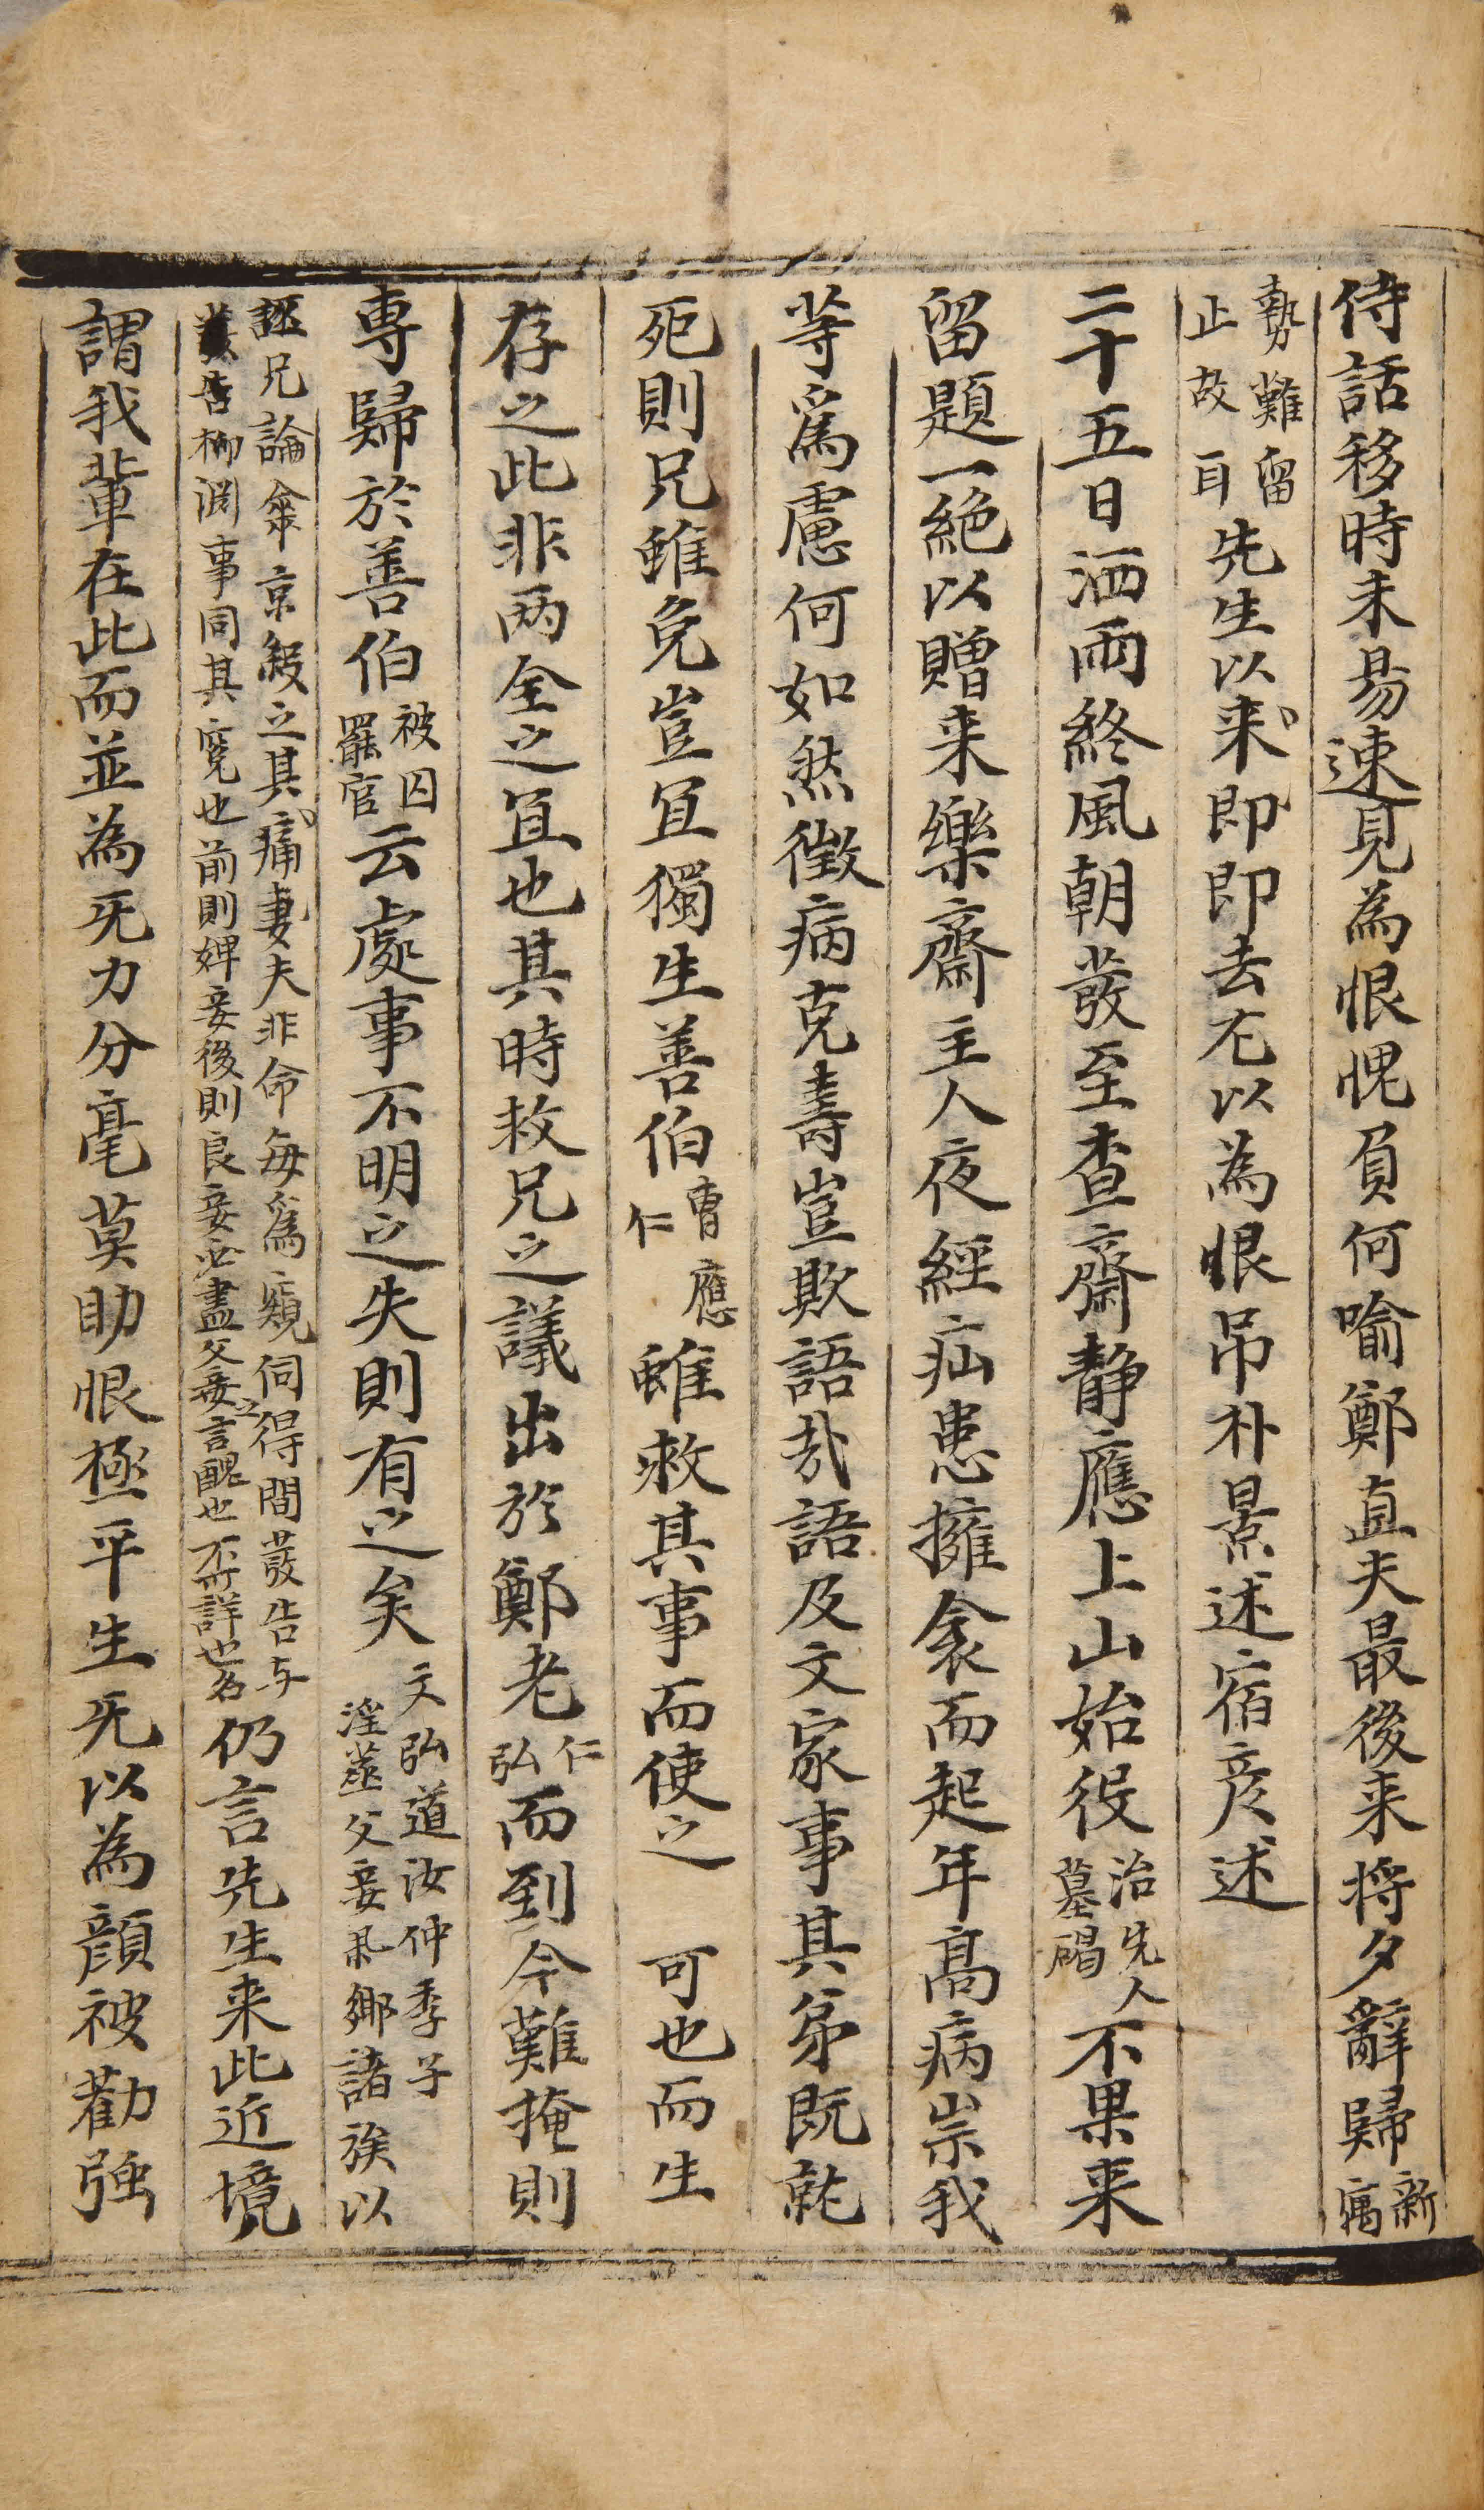 侍話移時未易速見為恨愧負何喻鄭直夫最後来將夕辭歸新寓
勢難留止故耳先生以来即即去旡以為恨吊朴景述宿彦述
二十五日洒雨終風朝發至查齋静應上山始役治先人墓碣不果来
留題一絶以贈来樂齋主人夜經疝患擁衾而起年髙病祟我
等為慮何如然徴病克壽豈欺語㢤語及文家事其弟既就
死則兄雖免豈冝獨生善伯曺應仁雖救其事而使之可也而生
存之此非两全之冝也其時救兄之議出於鄭老仁弘而到今難掩則
専歸於善伯被囚罷官云處事不明之失則有之矣文弘道汝仲季子淫蒸父妾系鄉諸族以
誣兄論金京縀之其痛妻夫非命每為窺伺得間發告与
告柳渊事同其寃也前則婢妾後則良妾必盡父妾之言醜也不詳也名仍言先生来此近境
謂我輩在此而並為旡力分毫莫助恨極平生旡以為顔被勸强